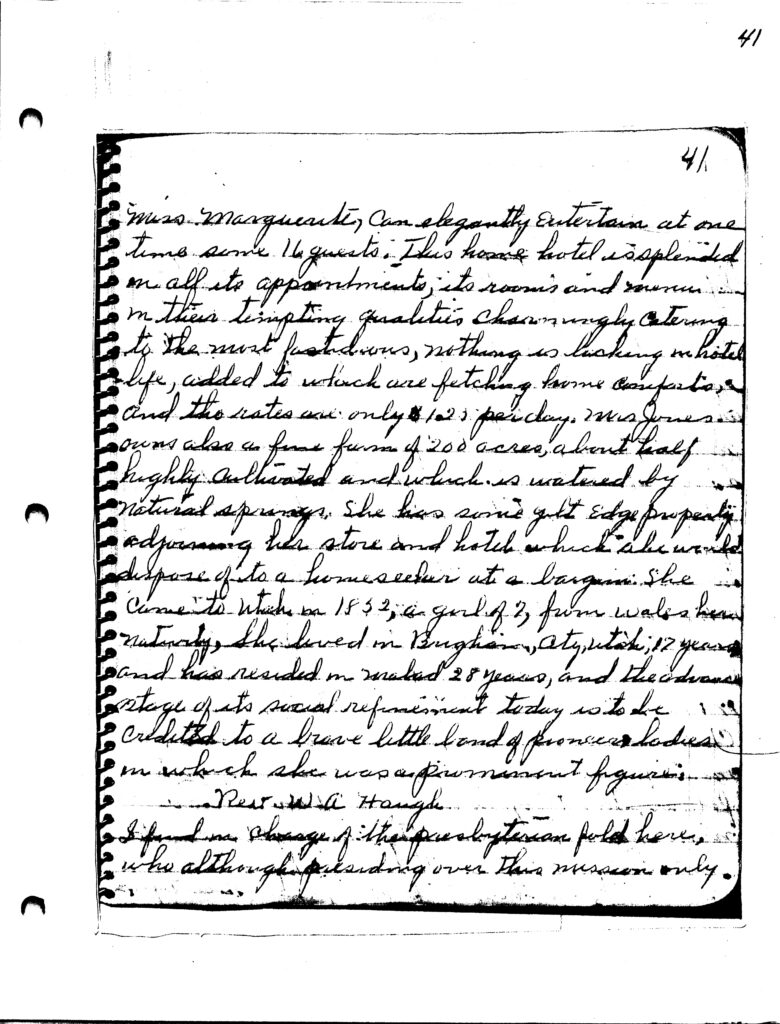 41
41
Miss Marguerite, Can elegantly Entertain at one
time some 16 guests. This home hotel is splendid
in all its appointments, its rooms and menu
in their tempting qualities charmingly Catering
to the most fastidious, nothing is lacking in hotel
life, added to which are fetching home comforts,
and the rates are only $1.25 per day. Mrs Jones
owns also a fine farm of 200 acres, about half
highly Cultivated and which is watered by
natural springs. She has some gilt Edge property
adjoining her store and hotel which she would
dispose of to a homeseeker at a bargain. She
Came to Utah in 1852, a girl of 7, from Wales her
nativity, She lived in Brigham City, Utah, 17 years
and has resided in Malad 28 years, and the advance
stage of its social refinement today is to be
Credited to a brave little band of pioneer ladies
in which she was a prominent figure.
Rev. W A Hough
I find in charge of the presbyterian fold here,
who although presiding over this mission only